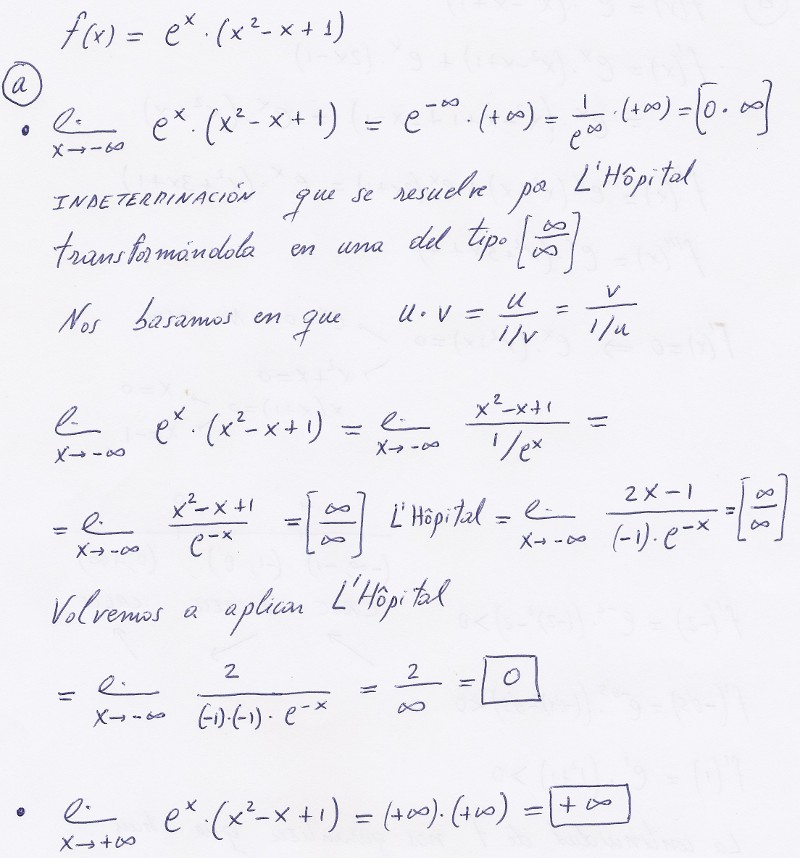 f(x) = e^x · (x² - x + 1)
a
• l. x→-∞ e^x · (x² - x + 1) = e^-∞ · (+∞) = 1/e^∞ · (+∞) = [0 · ∞]
INDETERMINACIÓN que se resuelve por L'Hôpital
transformándola en una del tipo [∞/∞]
Nos basamos en que u · v = u/1/v = v/1/u
l. x→-∞ e^x · (x² - x + 1) = l. x→-∞ x²-x+1 / 1/e^x =
= l. x→-∞ x²-x+1 / e^-x = [∞/∞] L'Hôpital = l. x→-∞ 2x-1 / (-1)·e^-x = [∞/∞]
Volvemos a aplicar L'Hôpital
= l. x→-∞ 2 / (-1)·(-1)·e^-x = 2/∞ = 0
• l. x→+∞ e^x · (x² - x + 1) = (+∞)·(+∞) = +∞